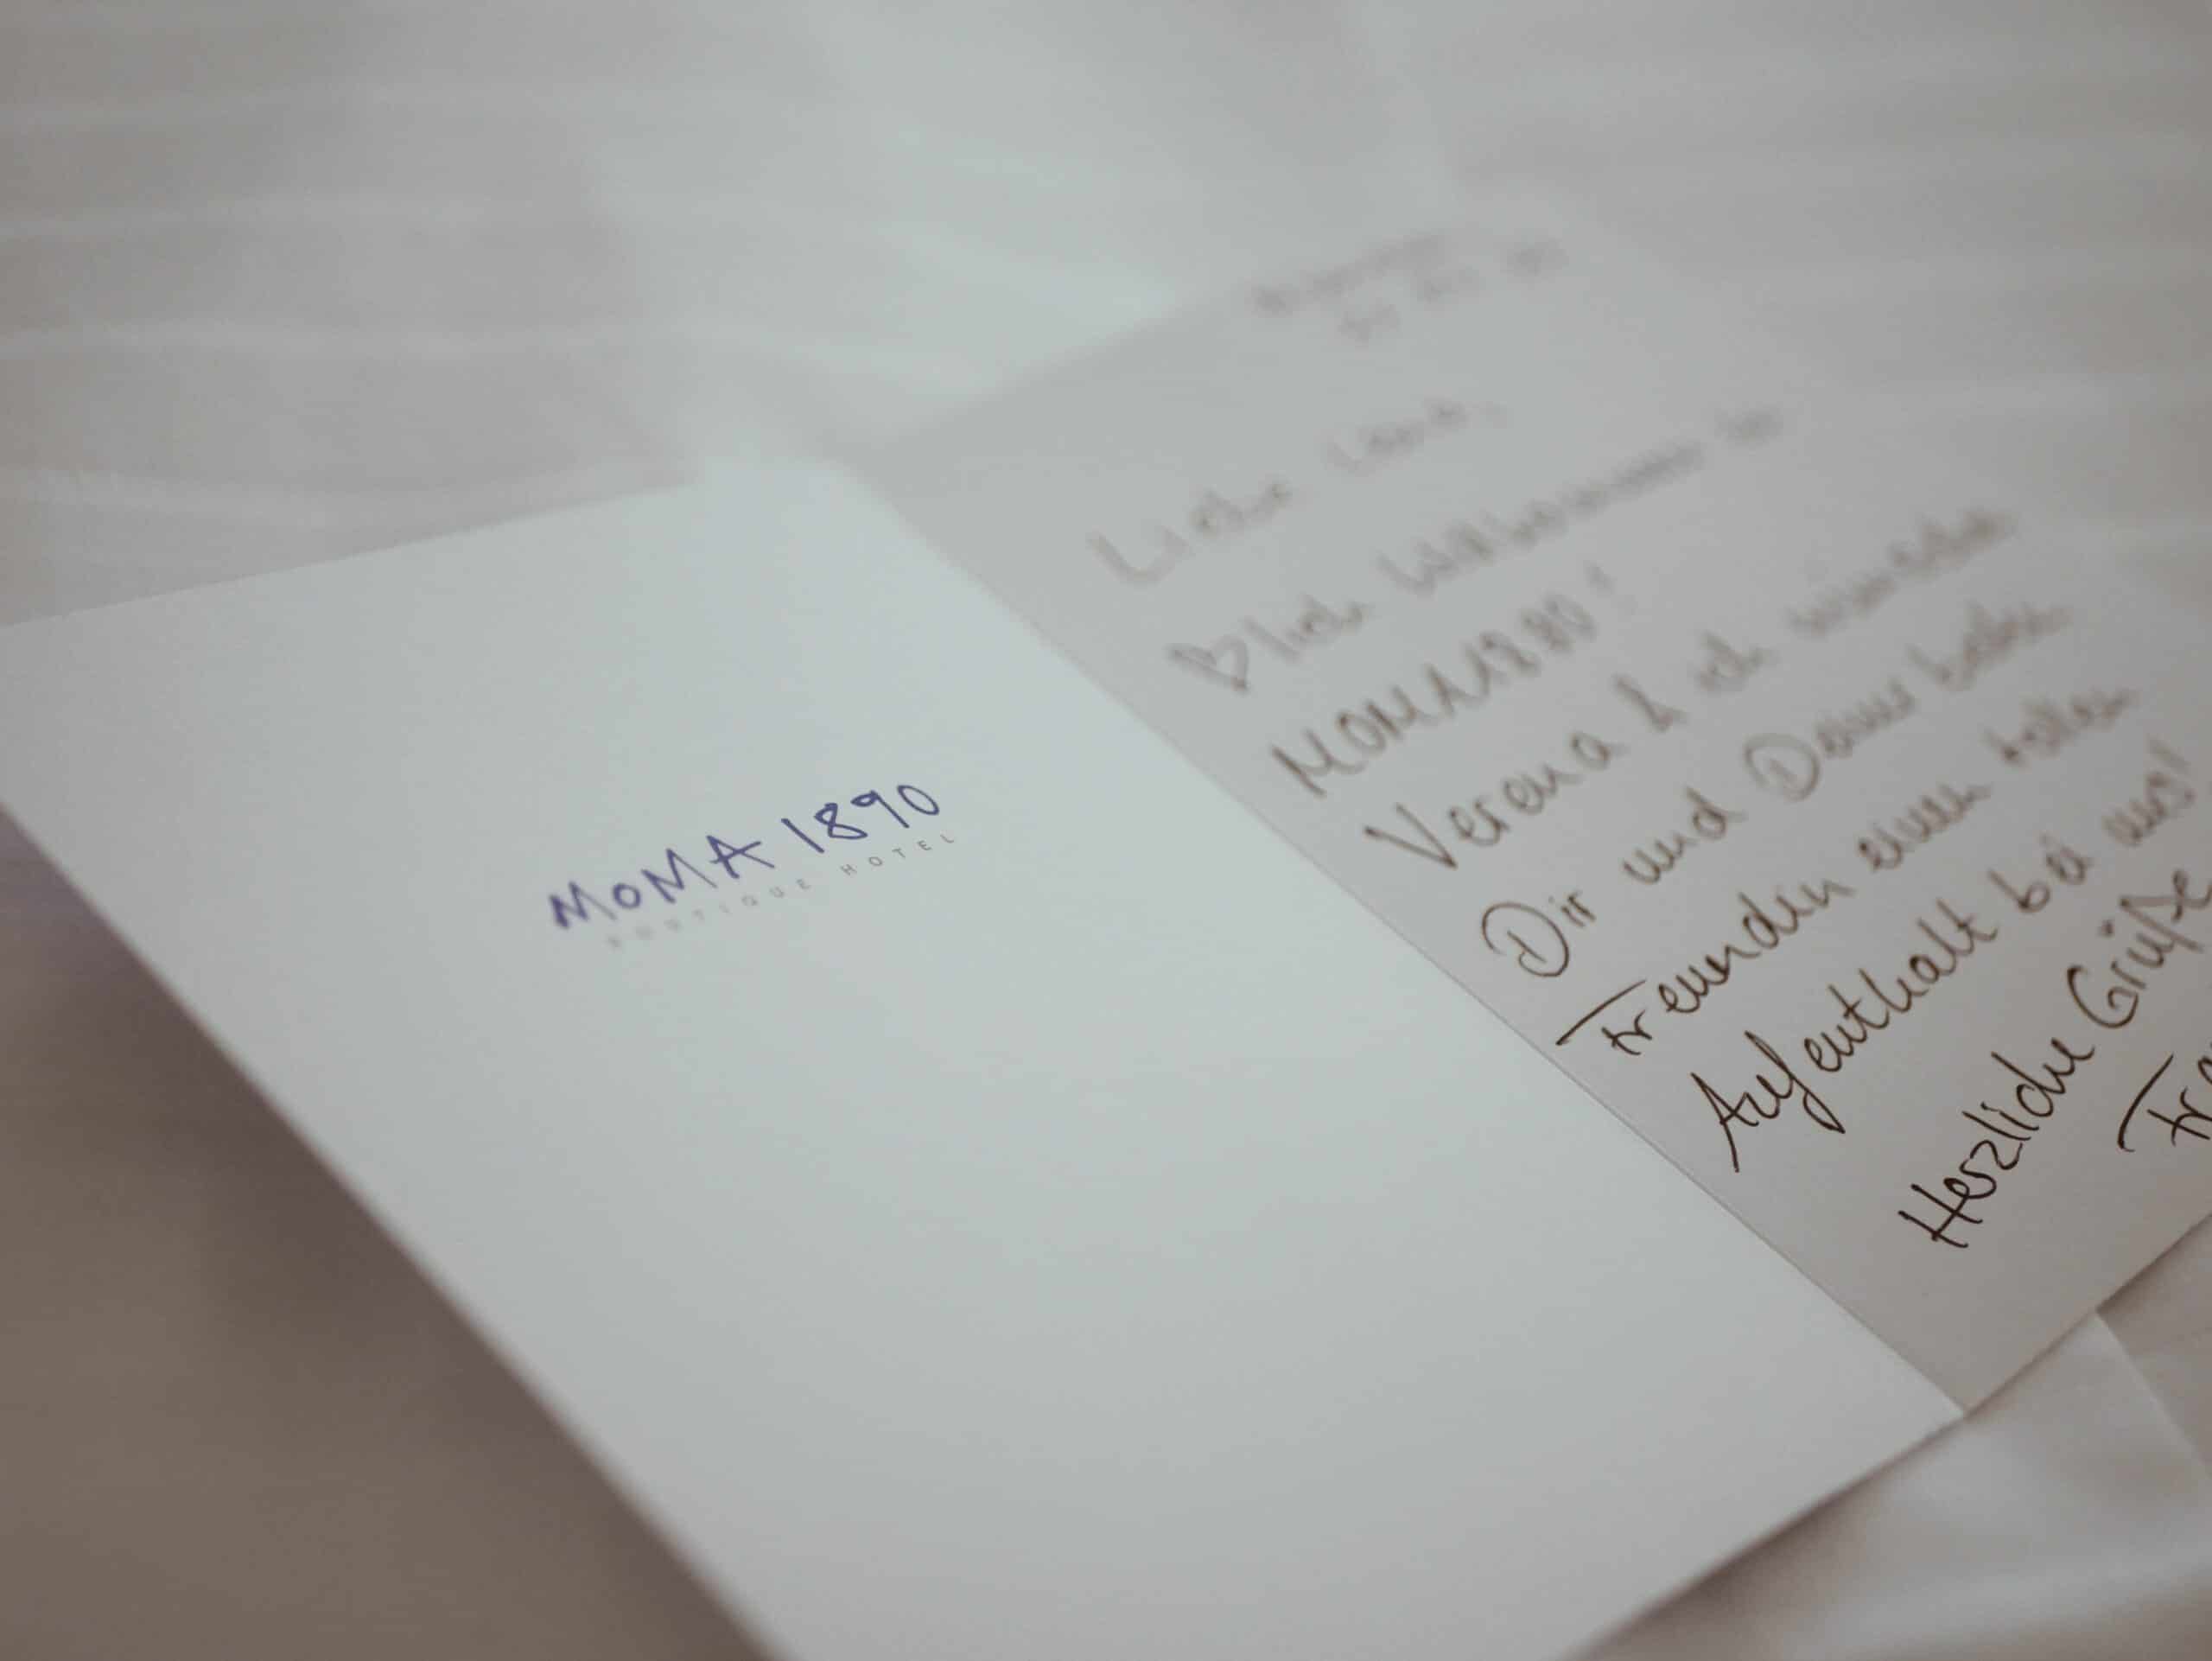 MoMA 1890
BOUTIQUE HOTEL
Liebe
♡lich Willkommen im
MOMA1890!
Verena & ich wünschen
Dir und Deinen beiden
Freunden einen tollen
Aufenthalt bei uns!
Herzliche Grüße
Fra